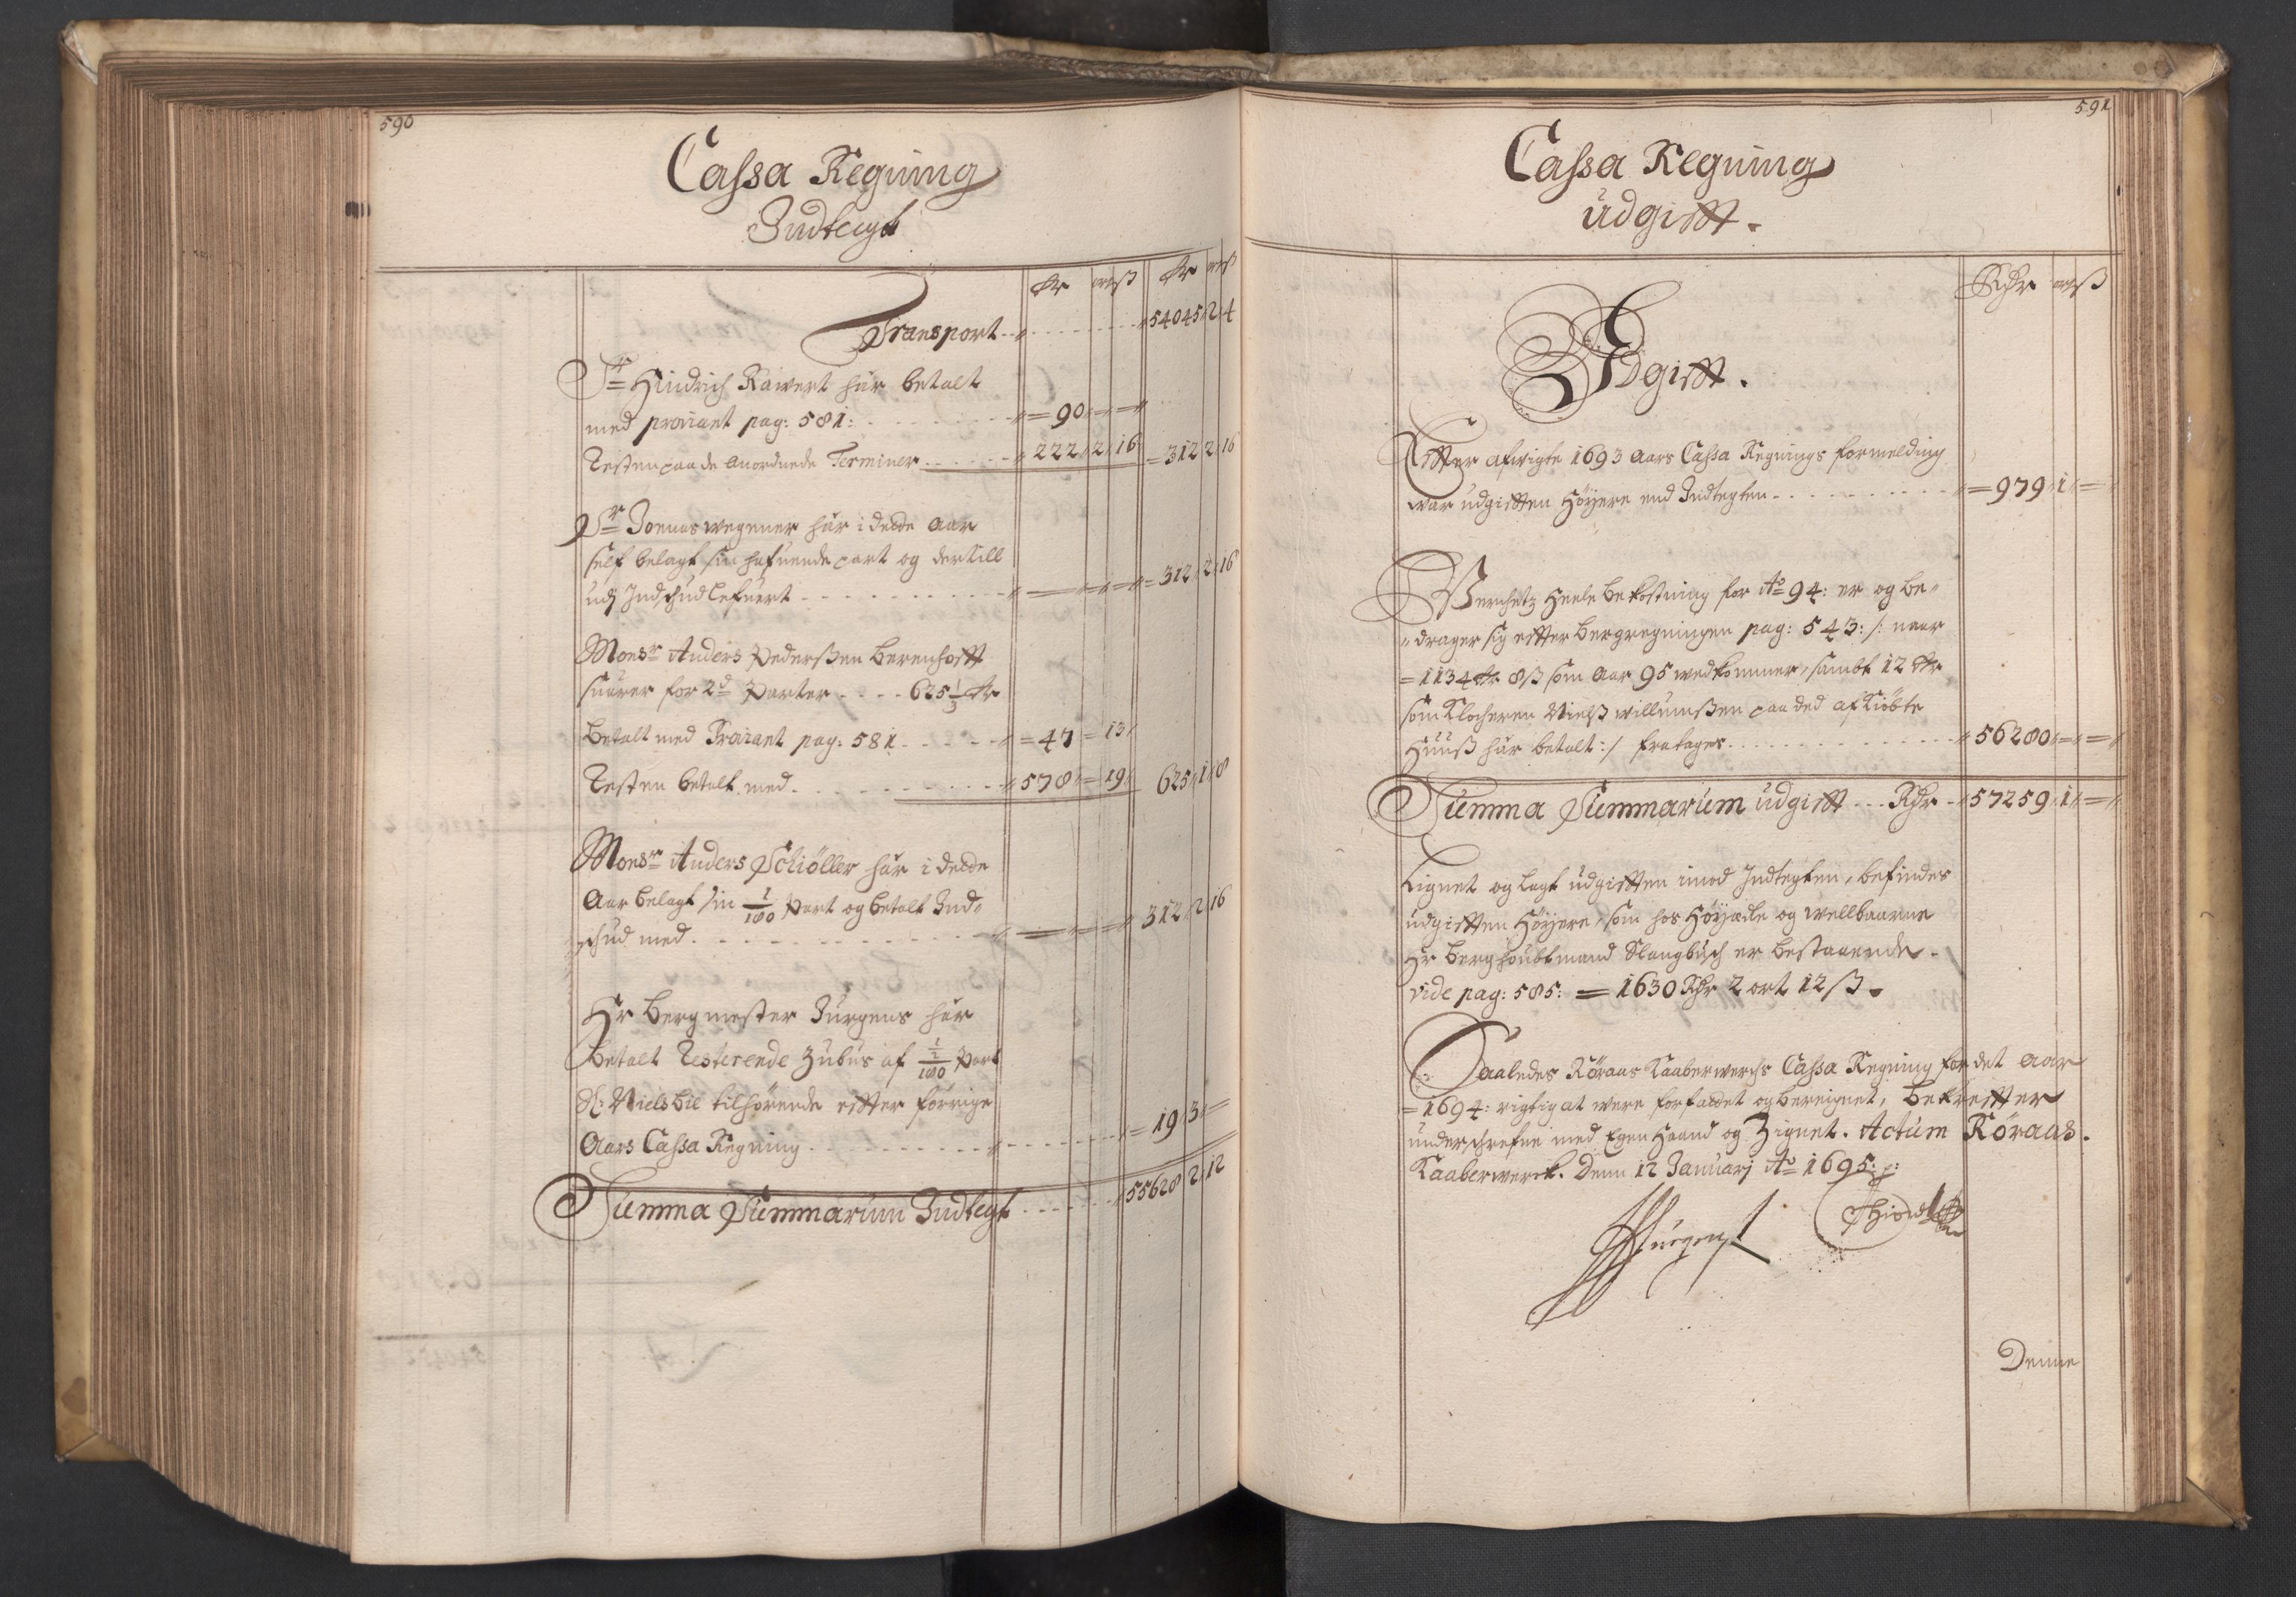 590
Cassa Regning
Indtegt
Rdr ort ß Rdr ort ß
Transport 54045 2 4
Sr Hindrich Rawert har betalt
med proviant pag: 581: = 90 = =
Resten paa de anordnede Terminer 222 2 16 = 312 2 16
Sr Jonas wegener har i dette Aar
self belagt sin hafuende part og dertill
udj Indschud lefuert = = = = 312 2 16
Monsr Anders Pederßen Berenhofft
suarer for 2d Parter 625 1/3 Rdr
Betalt med Proviant pag: 581 = 47 = 13
Resten betalt med 578 = 19 625 1 8
Monsr Anders Schiöller har i dette
Aar belagt sin 1/180 Part og betalt Ind-
schud med = = = 312 2 16
Hr Bergmester Jürgens har
betalt Resterende Zubus af 1/2/180 Part
Sl: Niels Bil tilhörende effter forrige
Aars Cassa Regning = 19 3 =
Summa Summarum Indtegt 55628 2 12
591
Cassa Regning
Udgifft.
Rdr ort ß
Udgifft.
Effter afwigte 1693 Aars Cassa Regnings formelding
war udgifften Höyere end Indtegten = 979 1 =
Werchetz heele bekostning for Ao 94: er og be-
drager sig effter bergregningen pag: 543: /: naar
= 1134 Rdr 8 ß som Aar 95 wedkommer, sambt 12 Rdr
som Klocheren Nielß willumßen paa ded af Kiöbte
Huuß har betalt :/ fratages 56280 = =
Summa Summarum udgifft Rdr 57259 1 =
Lignet og lagt udgifften imod Indtegten, befindes
udgifften Höyere, som hos Höyædle og wellbaarne
Hr Berghoubtmand Slangbusch er bestaaende.
vide pag: 585: = 1630 Rdr 2 ort 12 ß.
Saaledes Röraas Kaaberwerchs Cassa Regning for det Aar
= 1694: rigtig at were forfattet og bereignet, bekreffter
underschrefne med Egen Haand og Zignet. Actum Röraas.
Kaaberwerck. Denn 12 Januarj Ao 1695:
Jürgens
Denne